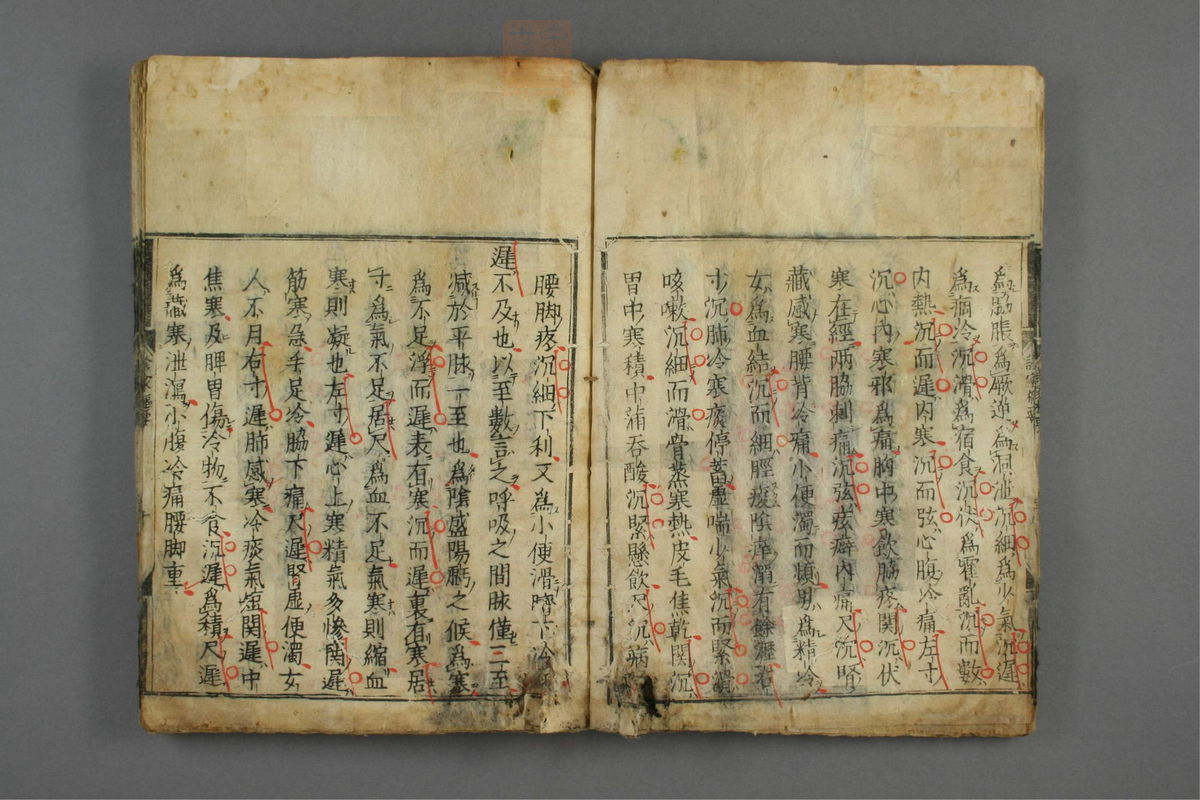 為脇脹為厥逆為洞泄沉細為少氣沉遲
為痼冷沉滑為宿食沉伏為霍亂沉而數
内熱沉而遲内寒沉而弦心腹冷痛左寸
沉心内寒邪為痛胸中寒飲脇疼関沉伏
寒在經两脇刺痛沉弦痃癖内痛尺沉腎
藏感寒腰背冷痛小便濁而頻男為精冷
女為血結沉而細脛痠陰痒溺有餘瀝右
寸沉肺冷寒痰停蓄虚喘少氣沉而緊滑
咳嗽沉細而滑骨蒸寒熱皮毛焦乾関沉
胃中寒積中滿吞酸沉緊懸飲尺沉病
腰脚疼沉細下利又為小便滑臍下冷
遲不及也以至數言之呼吸之間脉僅三至
減於平脉一至也為陰盛陽虧之候為寒
為不足浮而遲表有寒沉而遲裏有寒居
寸為氣不足居尺為血不足氣寒則縮血
寒則凝也左寸遲心上寒精氣多慘関遲
筋寒急手足冷脇下痛尺遲腎虚便濁女
人不月右寸遲肺感寒冷痰氣短関遲中
焦寒及脾胃傷冷物不食沉遲為積尺遲
為藏寒泄瀉小腹冷痛腰脚重